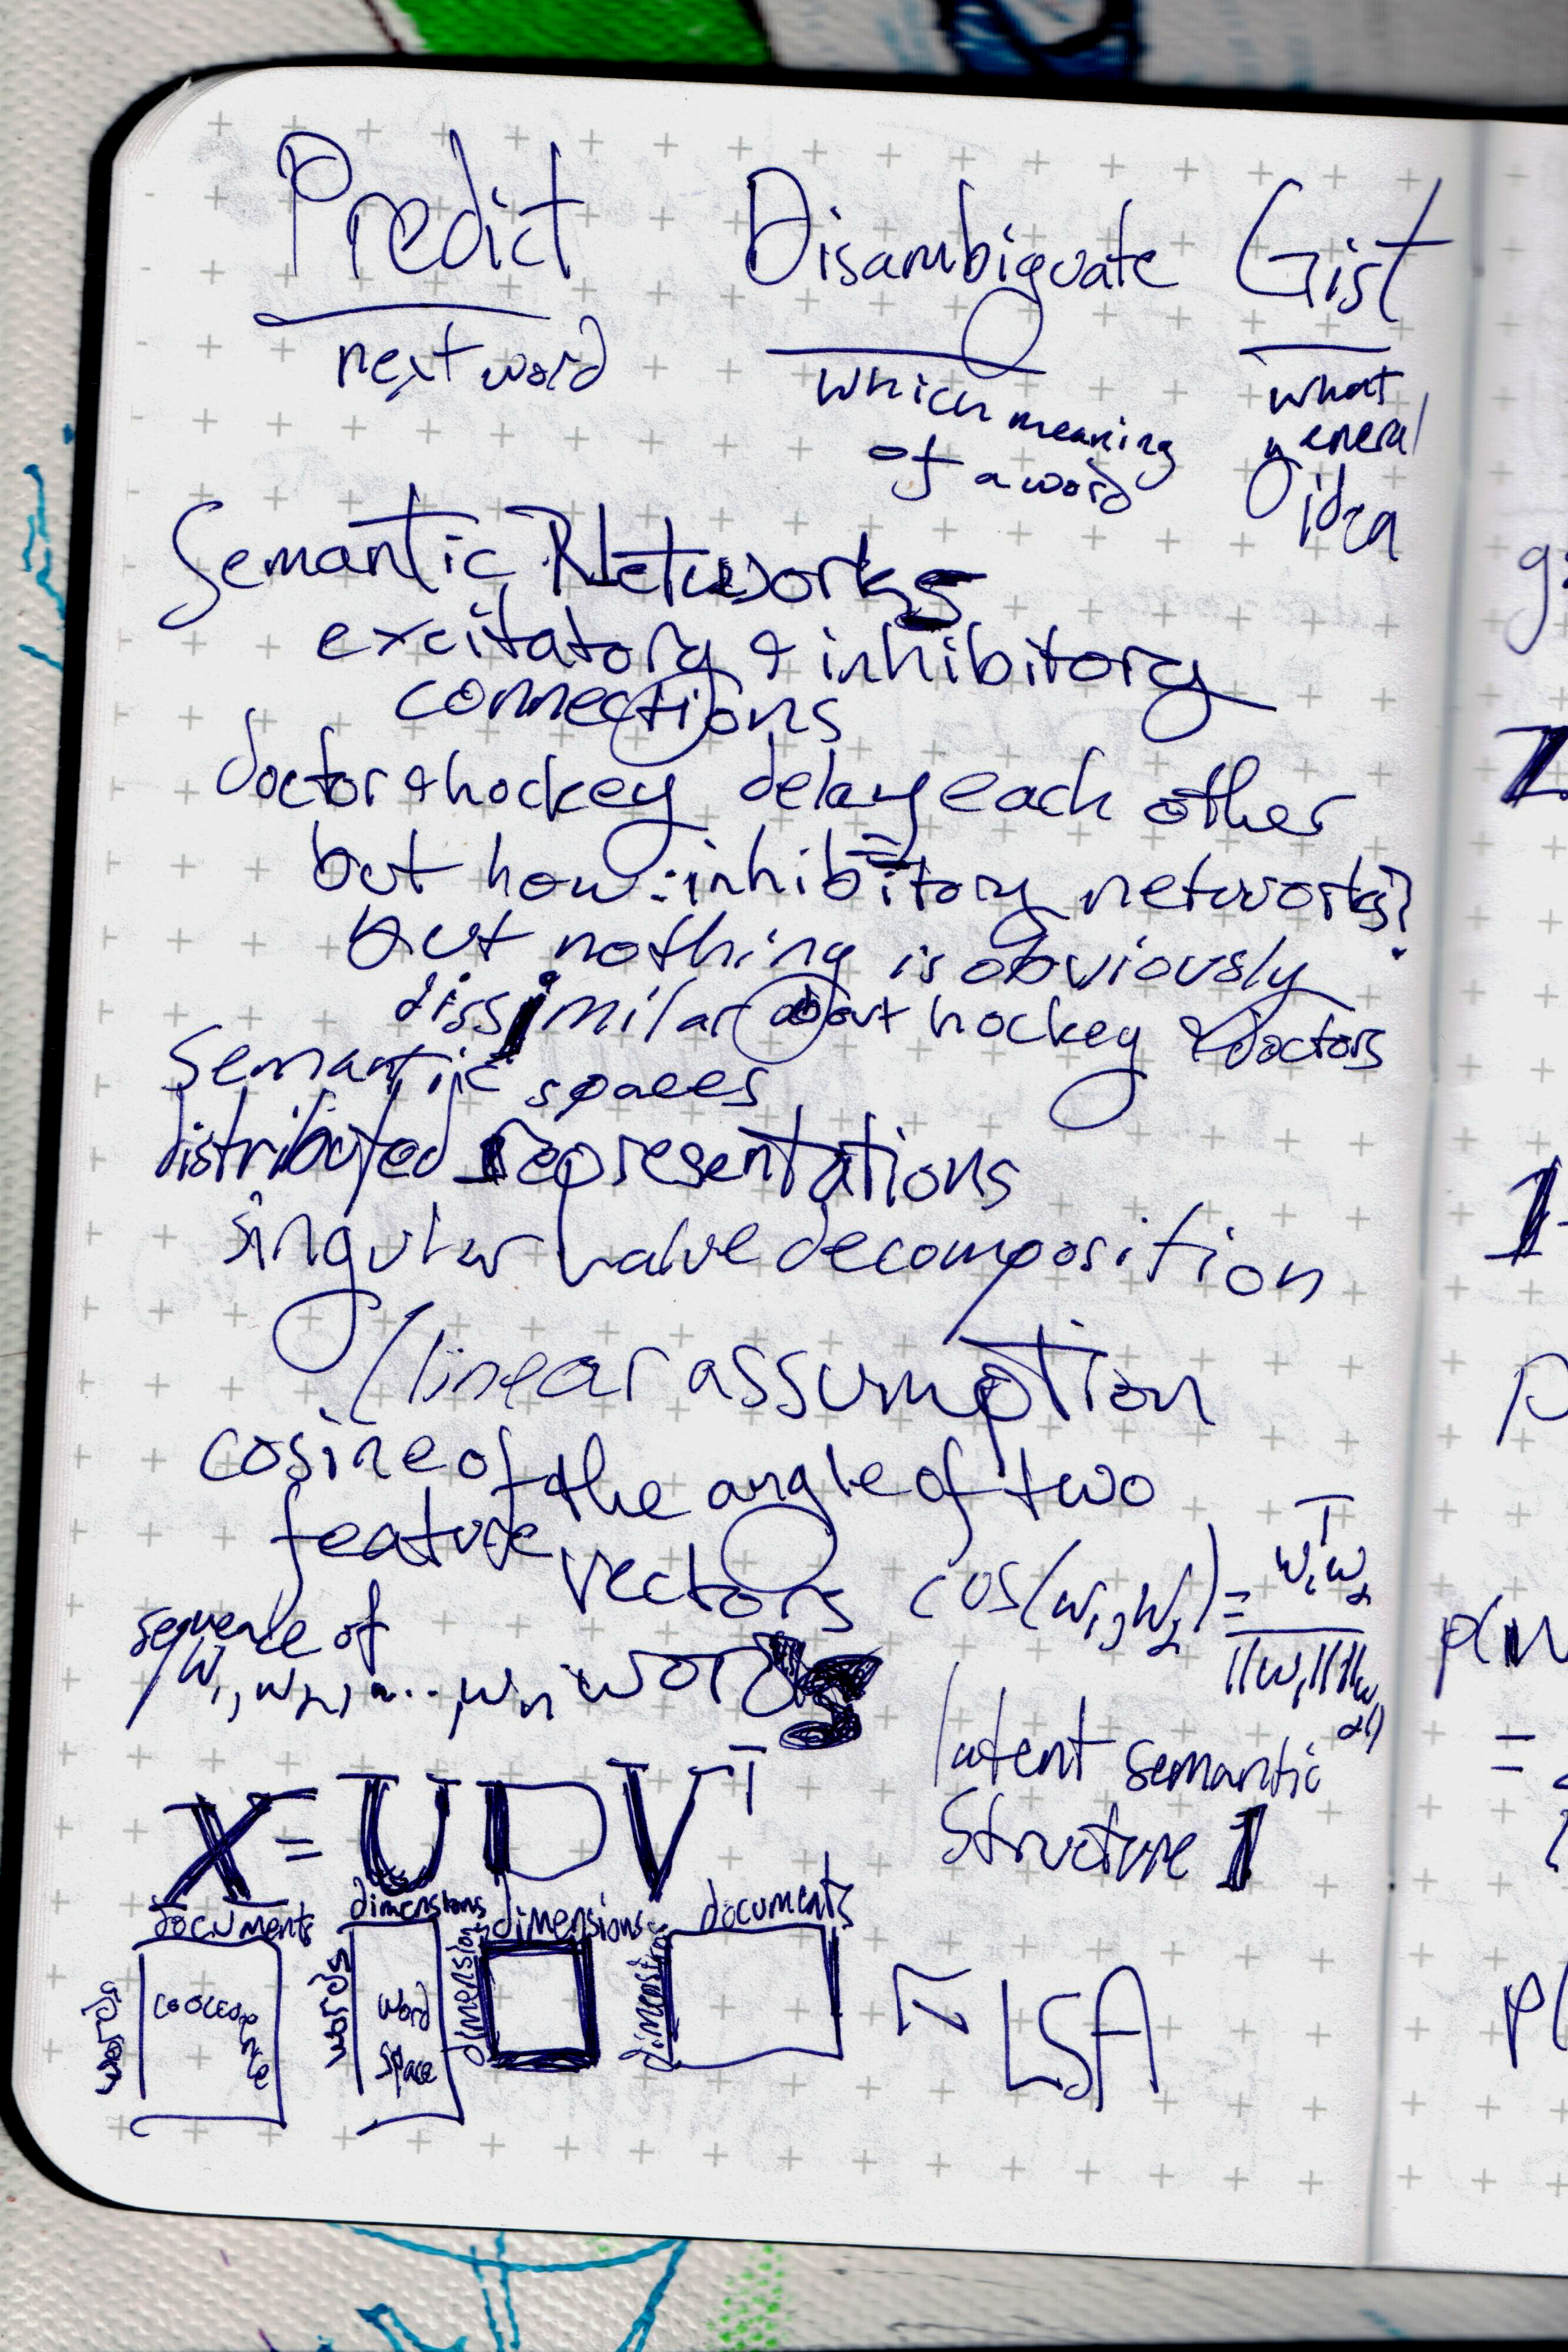 Predict Disambiguate Gist
next word which meaning of a word what general idea
Semantic Networks
excitatory & inhibitory
connections
doctor & hockey delay each other
but how: inhibitory networks?
but nothing is obviously
dissimilar about hockey & doctors
Semantic spaces
distributed representations
singular value decomposition
linear assumption
cosine of the angle of two
feature vectors cos(w₁,w₂) = w₁ᵀw₂ / ||w₁||||w₂||
sequence of
w₁, w₂, ..., wₙ words
latent semantic
structure l
X = U D Vᵀ
documents dimensions dimensions documents
words words dimensions dimensions
word space
LSA
g
Z
1
p
=
p(